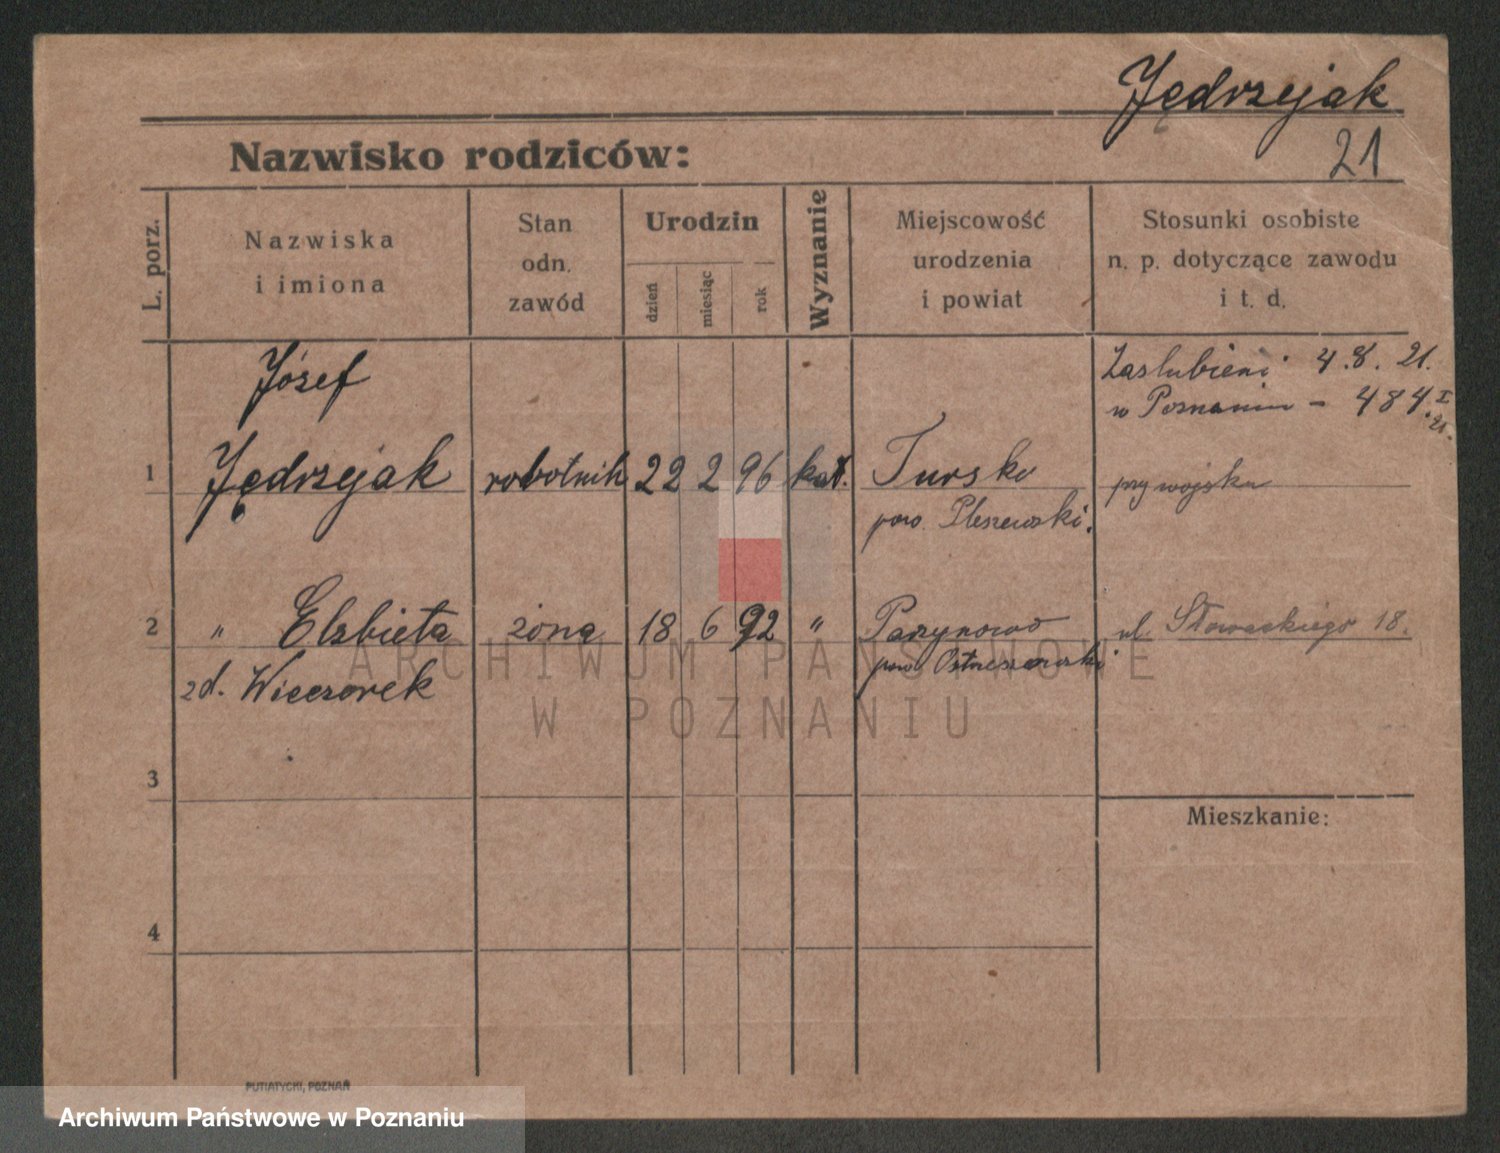 Jędrzejak
Nazwisko rodziców:
21
L. porz.
Nazwiska
i imiona
Stan
odn.
zawód
Urodzin
dzień
miesiąc
rok
Wyznanie
Miejscowość
urodzenia
i powiat
Stosunki osobiste
n. p. dotyczące zawodu
i t. d.
Józef
Zaslubieni 4.8. 21.
w Poznaniu – 484 I
21.
1 Jędrzejak robotnik 22 2 96 kat. Tursko przy wojsku
pow. Pleszewski.
2 " Elzbieta żona 18 6 92 " Parzynowo ul. Słowackiego 18.
zd. Wieczorek pow. Ostrzeszowski
ARCHIWUM PAŃSTWOWE
W POZNANIU
3
Mieszkanie:
4
PUTIATYCKI, POZNAŃ
Archiwum Państwowe w Poznaniu